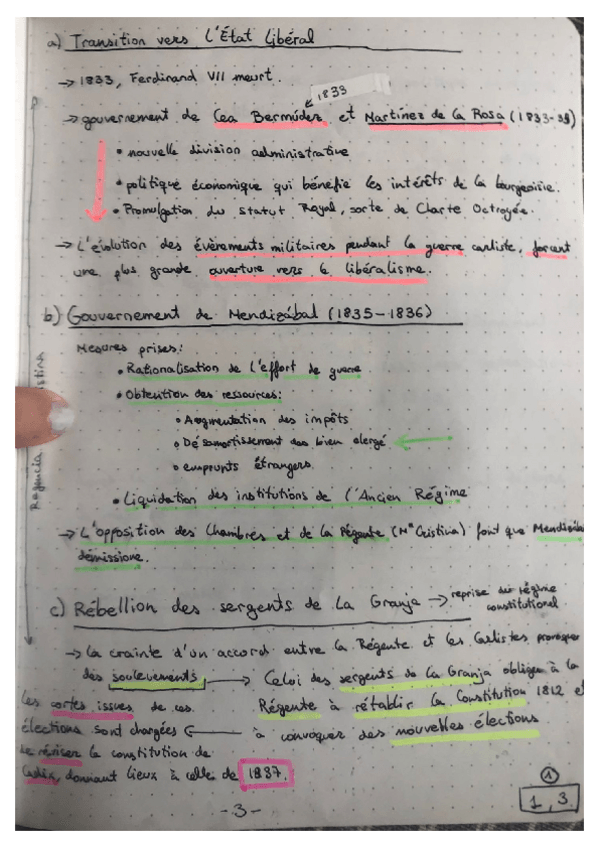 a) Transition vers L'État Libéral
→ 1833, Ferdinand VII meurt.
1833
→ gouvernement de Cea Bermúdez et Martínez de la Rosa (1833-35)
• nouvelle division administrative
• politique économique qui bénéfie les intérêts de la bourgeoisie.
• Promulgation du Statut Royal, sorte de Charte Octroyée.
→ L'évolution des évèrements militaires pendant la guerre carliste, forcent
une plus grande ouverture vers le libéralisme.
b) Gouvernement de Mendizábal (1835-1836)
Mesures prises:
• Rationalisation de l'effort de guerre
• Obtention des ressources:
• Augmentation des impôts
• Désamortissement des bien clergé
• emprunts étrangers
• Liquidation des institutions de l'Ancien Régime
→ L'opposition des Chambres et de la Régente (Mª Cristina) font que Mendizába
démissione.
c) Rébellion des sergents de La Granja → reprise du régime
constitutionel
→ La crainte d'un accord entre la Régente et les Carlistes provoquer
des soulevements → Celoi des sergents de la Granja obligen à la
Régente à rétablir la Constitution 1812 et
à convoquer des nouvelles élections
Les cortes issues de ces
élections sont chargées
de réviser la constitution de
Cadix, donnant lieux à celle de 1837.
Regencia Cristina
- 3 -
1
1, 3